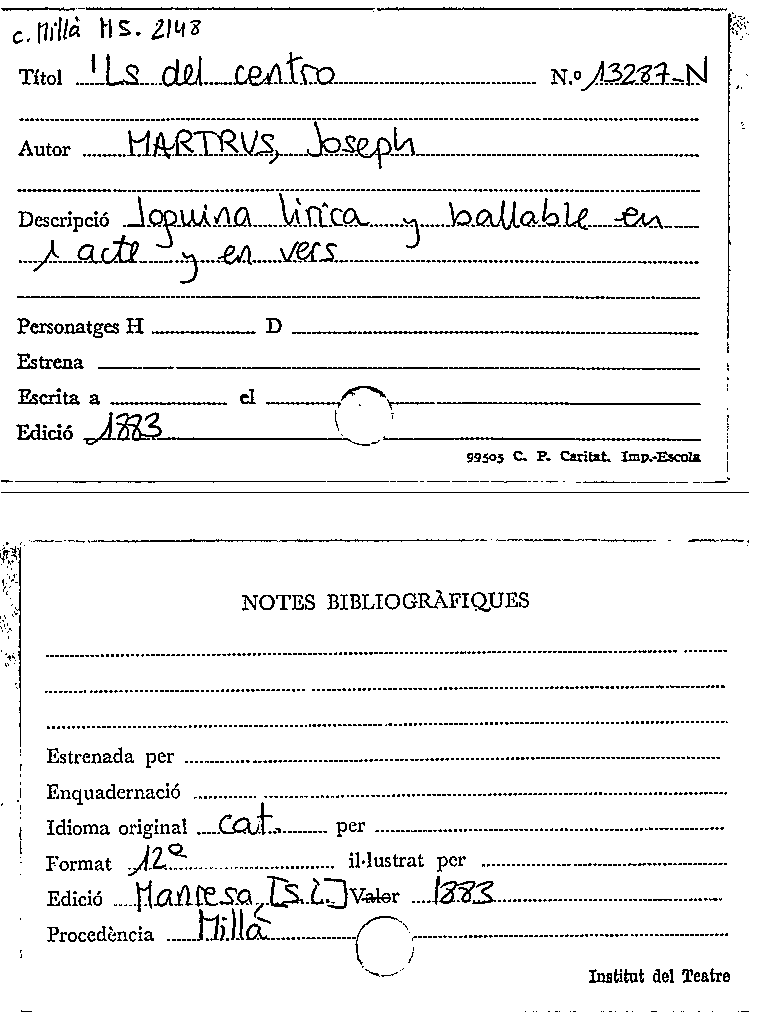 c. Millà MS. 2148
Títol 'Ls del centro N.º 13287-N
Autor MARTRUS, Joseph
Descripció Joguina lírica y ballable en
1 acte y en vers
Personatges H D
Estrena
Escrita a el
Edició 1883
99505 C. P. Caritat. Imp.-Escola
NOTES BIBLIOGRÀFIQUES
Estrenada per
Enquadernació
Idioma original cat. per
Format 12º il·lustrat per
Edició Manresa, [s.i.] Valor 1883
Procedència Millà
Institut del Teatre